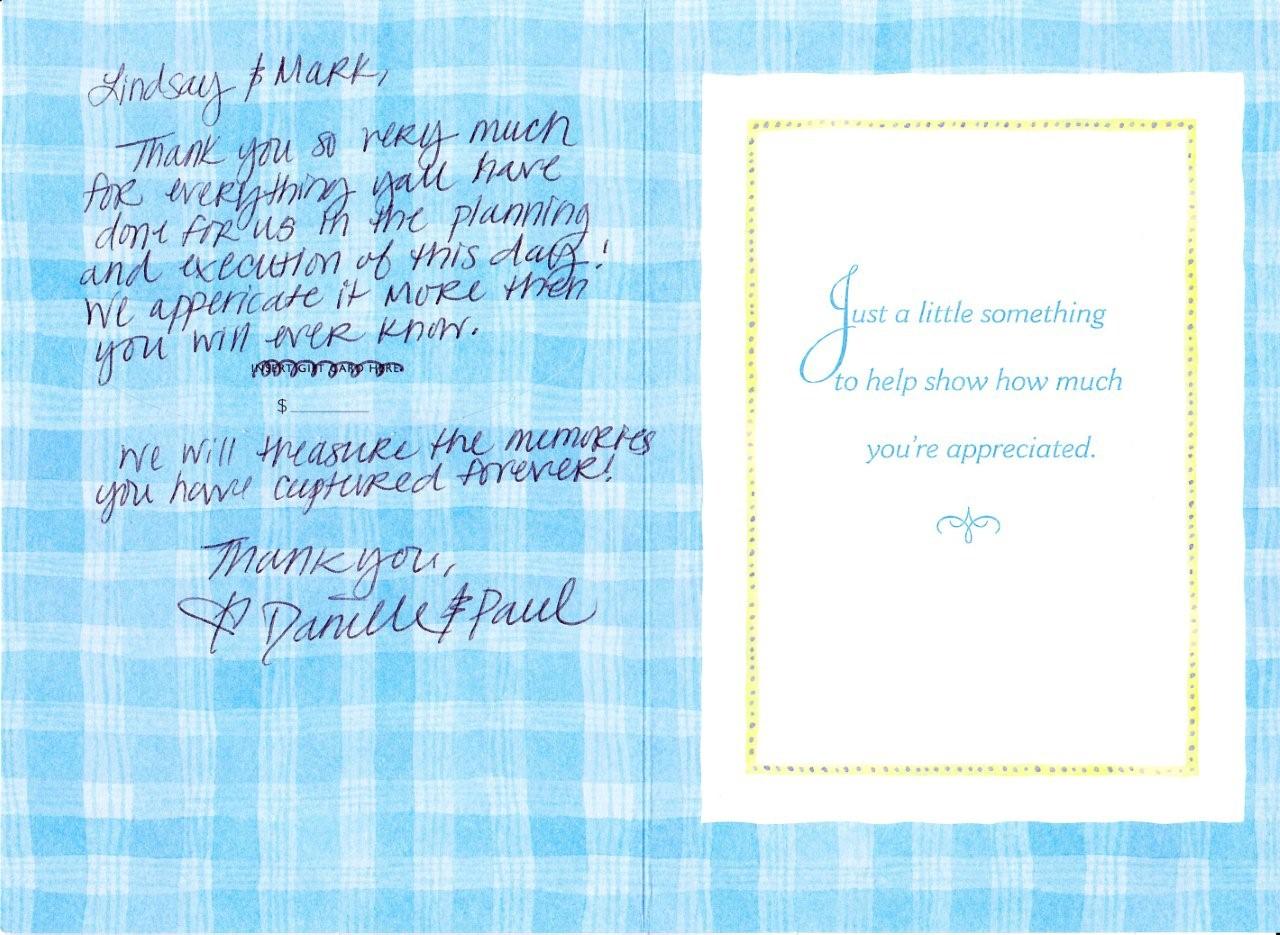 Lindsay & Mark,
Thank you so very much
for everything yall have
done for us in the planning
and execution of this day!
We appericate it more then
you will ever know.
INSERT GIFT CARD HERE
$
We will treasure the memories
you have captured forever!
Thank you,
Danielle & Paul
Just a little something
to help show how much
you're appreciated.